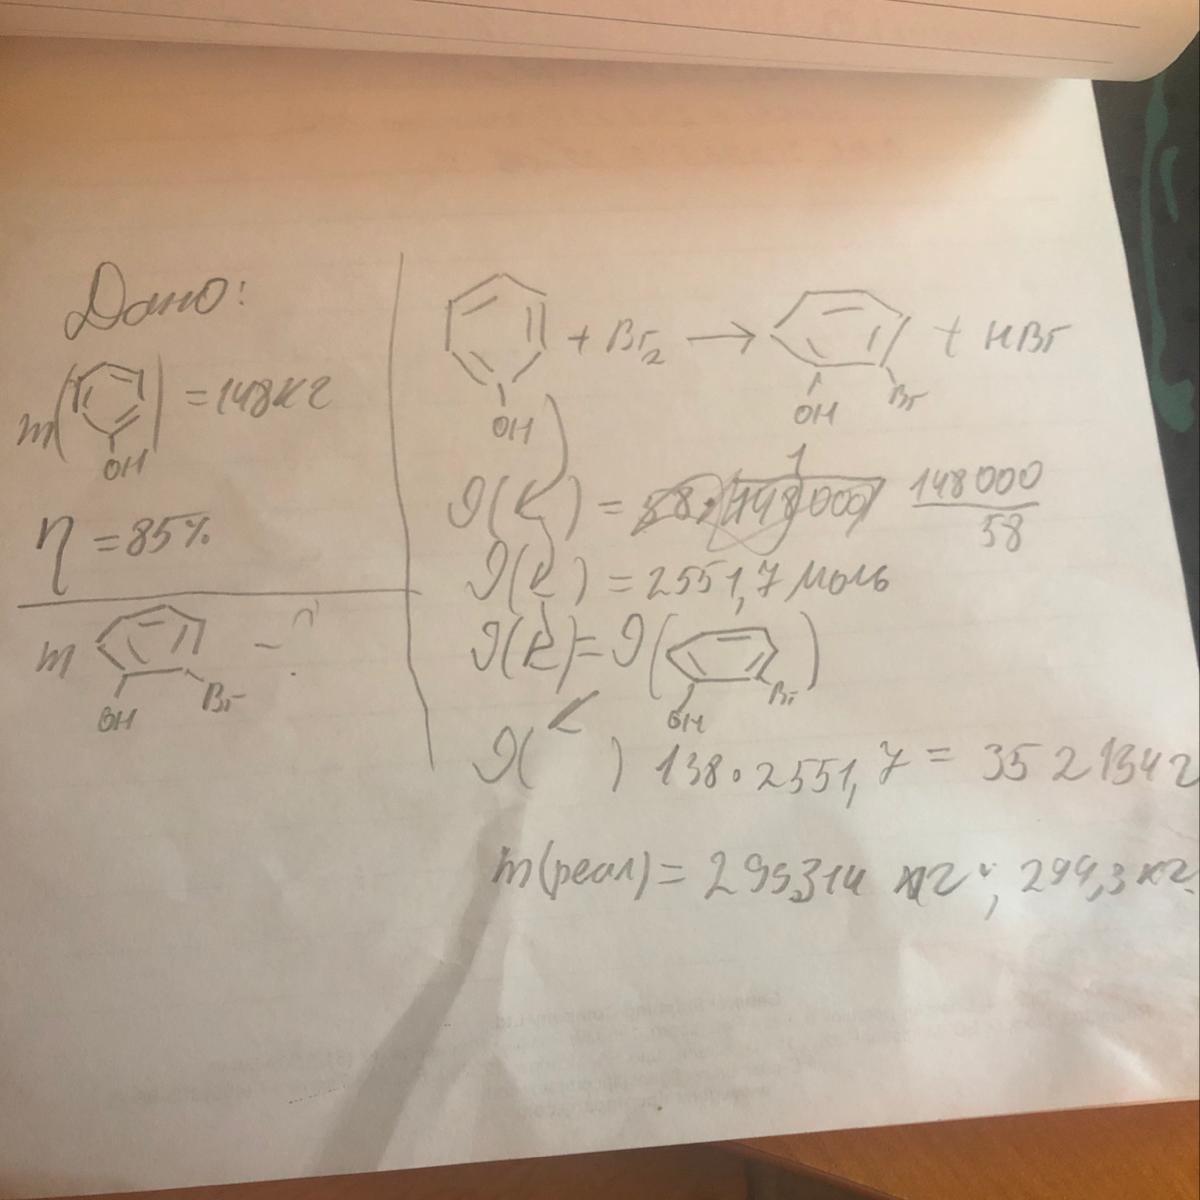 Дано:
m( OH ) = 148кг
η = 85%
m OH Br - ?
OH + Br2 → OH Br + HBr
ϑ( ) = 1 148 000 / 58
ϑ( ) = 2551,7 моль
ϑ( ) = ϑ( OH Br )
ϑ( ) 138 · 2551,7 = 352134г
m(реал) = 299,314 кг; 299,3 кг